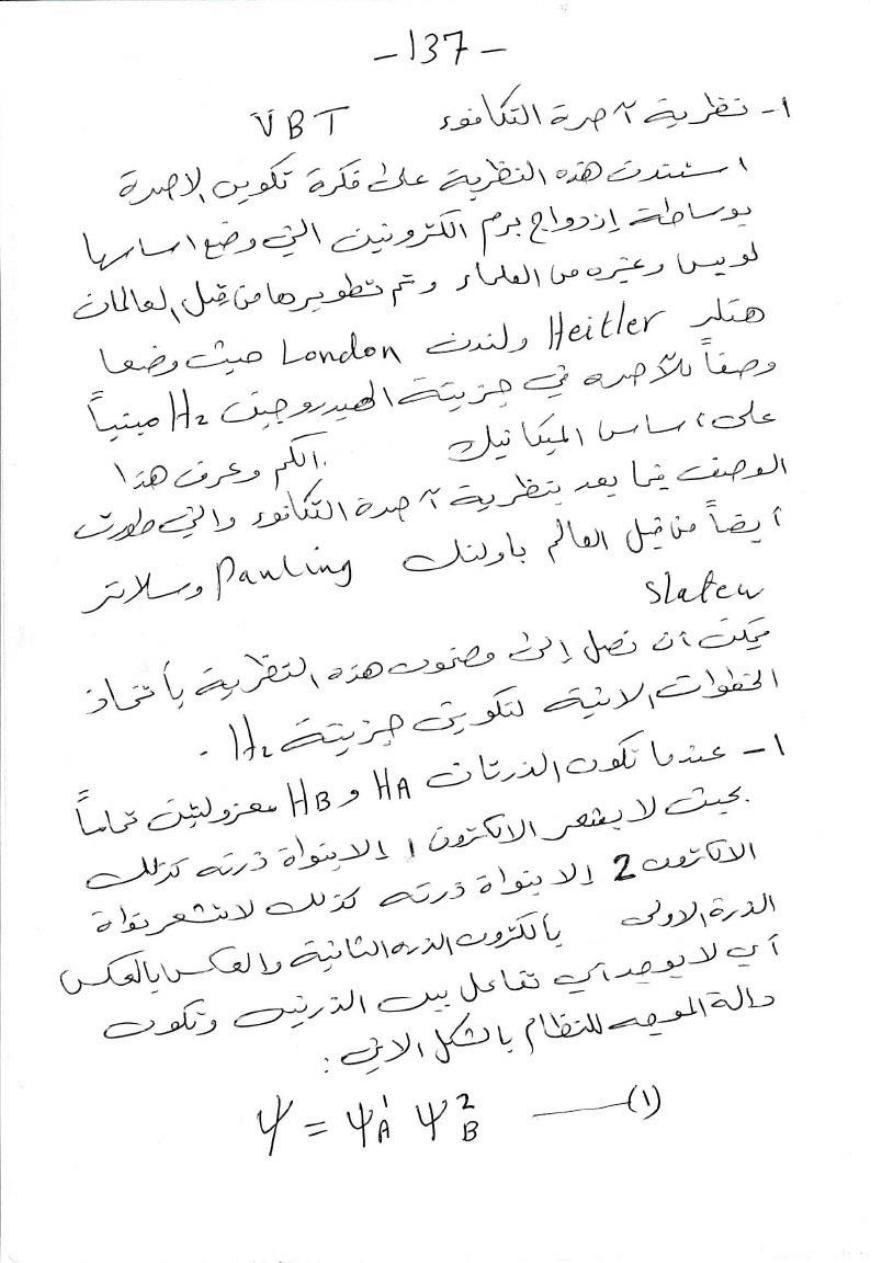 -137-
١- نظرية آصرة التكافوء VBT
استندت هذه النظرية على فكرة تكوين الاصرة
بوساطة إزدواج برم الكترونين التي وضع اساسها
لويس وغيره من العلماء وتم تطويرها من قبل العالمان
هتلر Heitler ولندن London حيث وضعا
وصفاً للآصره في جزيئة الهيدروجين H₂ مبنياً
على اساس الميكانيك الكم وعرف هذا
الوصف فيما بعد بنظرية آصرة التكافوء والتي طورت
أيضاً من قبل العالم باولنك Pauling وسلاتر
Slater
يمكن أن نصل إلى مضمون هذه النظرية بأتخاذ
الخطوات الاتية لتكوين جزيئة H₂ .
١- عندما تكون الذرتان HA و HB معزولتين تماماً
بحيث لا يشعر الالكترون 1 إلا بنواة ذرته كذلك
الالكترون 2 إلا بنواة ذرته كذلك لا تشعر نواة
الذرة الاولى بألكترون الذره الثانية والعكس بالعكس
أي لا يوجد أي تفاعل بين الذرتين وتكون
دالة الموجه للنظام بالشكل الاتي :
ψ = ψ¹A ψ²B —(١)